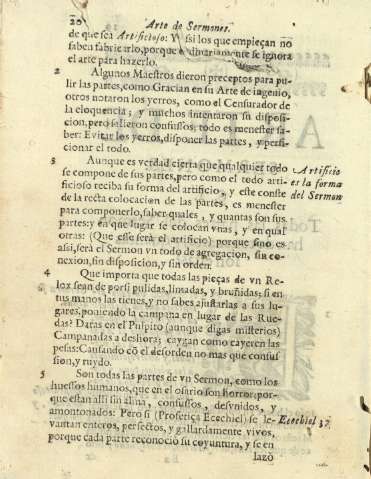 20 Arte de Sermones.
de que sea Artificioso: Y assi los que empieçan no
saben fabricarlo, porque ordinariamente se ignora
el arte para hazerlo.
2 Algunos Maestros dieron preceptos para pu-
lir las partes, como Gracian en su Arte de ingenio,
otros notaron los yerros, como el Censurador de
la eloquencia; y muchos intentaron su disposi-
cion, pero salieron confussos; todo es menester sa-
ber: Evitar los yerros, disponer las partes, y perfi-
cionar el todo.
3 Aunque es verdad cierta que qualquier todo
se compone de sus partes, pero como el todo arti-
ficioso reciba su forma del artificio, y este conste
de la recta colocacion de las partes, es menester
para componerlo, saber quales, y quantas son sus
partes: y en que lugar se colocan vnas, y en qual
otras: (Que esse serà el artificio) porque sino es
assi, serà el Sermon vn todo de agregacion, sin co-
nexion, sin disposicion, y sin orden.
Artificio
es la forma
del Sermon
4 Que importa que todas las pieças de vn Re-
lox sean de porsi pulidas, limadas, y bruñidas; si en
tus manos las tienes, y no sabes ajustarlas a sus lu-
gares, poniendo la campana en lugar de las Rue-
das? Daràs en el Pulpito (aunque digas misterios)
Campanadas a deshora; caygan como cayeren las
pesas: Causando cõ el desorden no mas que confus-
sion, y ruydo.
5 Son todas las partes de vn Sermon, como los
huessos humanos, que en el osario son horror; por-
que estan alli sin alma, confussos, desvnidos, y
amontonados: Pero si (Profetiça Ecechiel) se le-
vantan enteros, perfectos, y gallardamente vivos,
porque cada parte reconociò su coyuntura, y se en
Ecechiel 37.
lazò